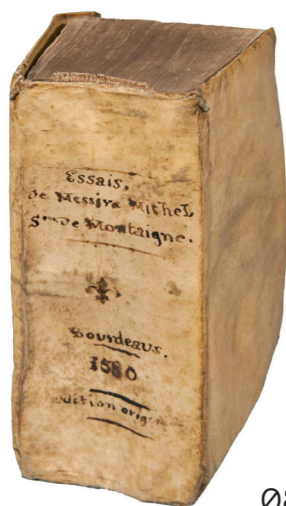 Essais,
De Messire Michel
Sr De Montaigne.
Bourdeaus.
1580
edition orig.
08